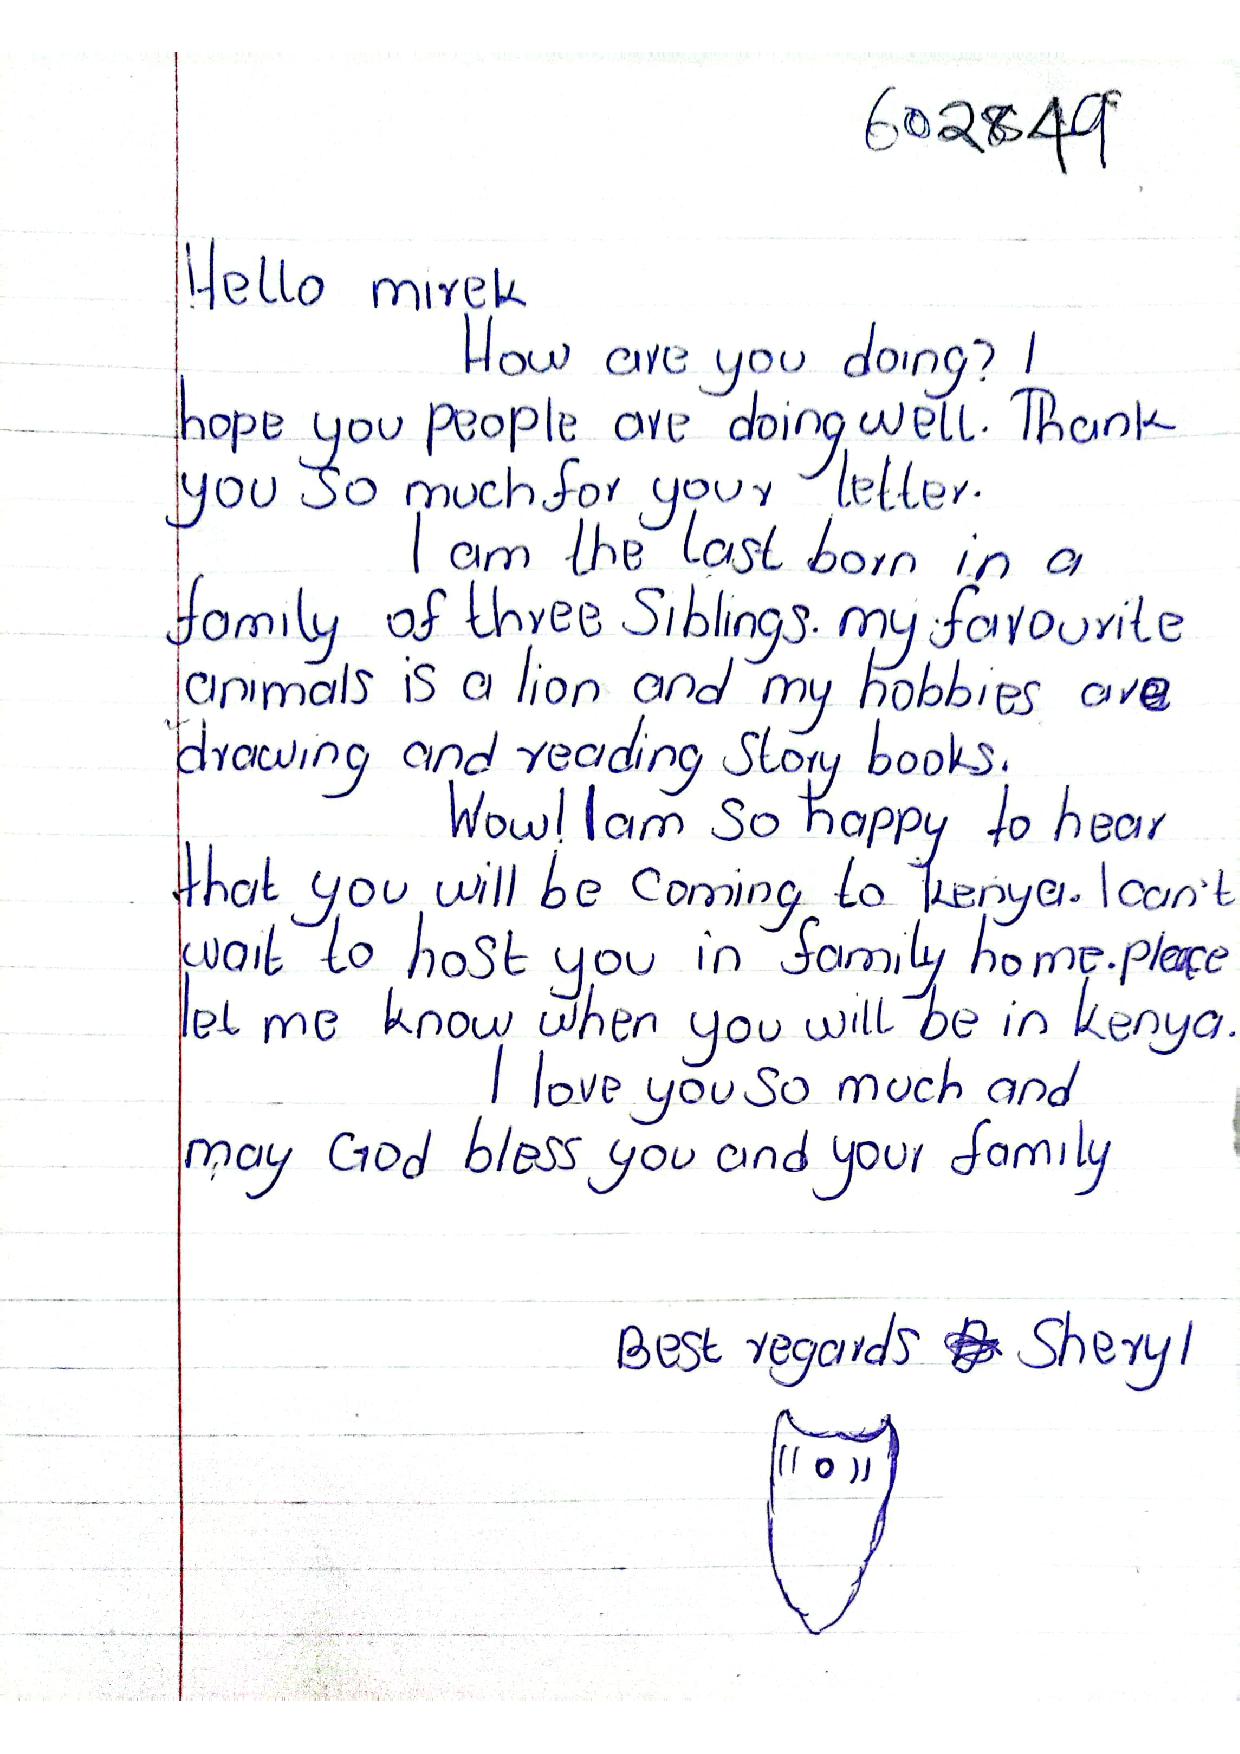 602849
Hello mirek
How are you doing? I
hope you people are doing well. Thank
you so much for your letter.
I am the last born in a
family of three Siblings. my favourite
animals is a lion and my hobbies are
drawing and reading Story books.
Wow! I am so happy to hear
that you will be coming to kenya. I can't
wait to host you in family home. please
let me know when you will be in kenya.
I love you so much and
may God bless you and your family
Best regards Sheryl